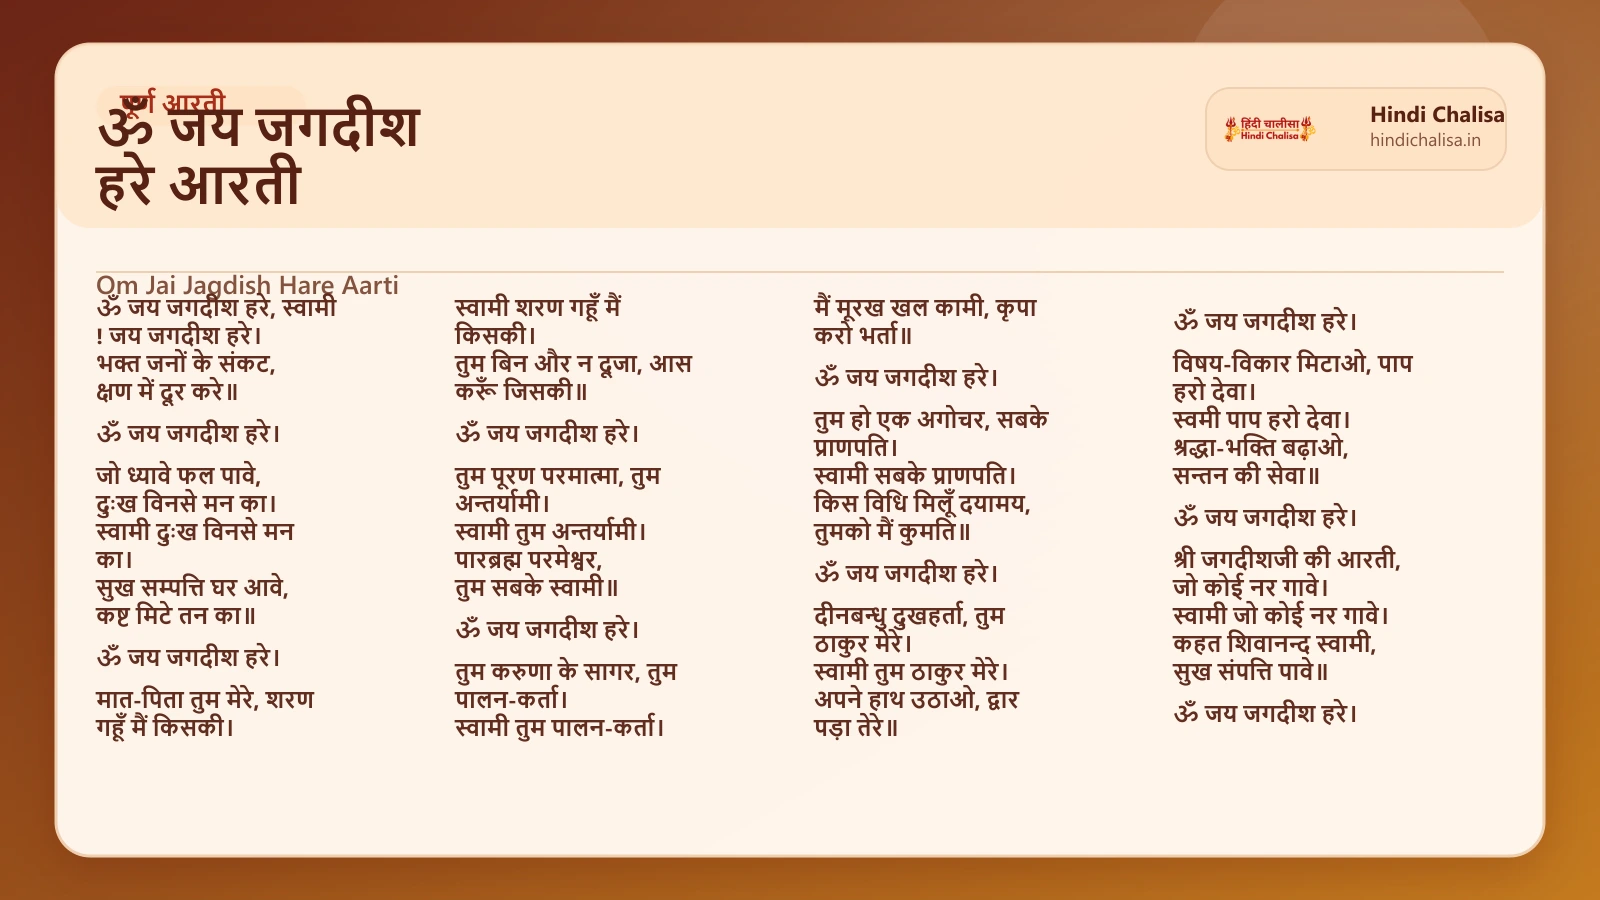 पूर्ण आरती
ॐ जय जगदीश
हरे आरती
हिंदी चालीसा
Hindi Chalisa
Hindi Chalisa
hindichalisa.in
Om Jai Jagdish Hare Aarti
ॐ जय जगदीश हरे, स्वामी
! जय जगदीश हरे।
भक्त जनों के संकट,
क्षण में दूर करे॥
ॐ जय जगदीश हरे।
जो ध्यावे फल पावे,
दुःख विनसे मन का।
स्वामी दुःख विनसे मन
का।
सुख सम्पत्ति घर आवे,
कष्ट मिटे तन का॥
ॐ जय जगदीश हरे।
मात-पिता तुम मेरे, शरण
गहूँ मैं किसकी।
स्वामी शरण गहूँ मैं
किसकी।
तुम बिन और न दूजा, आस
करूँ जिसकी॥
ॐ जय जगदीश हरे।
तुम पूरण परमात्मा, तुम
अन्तर्यामी।
स्वामी तुम अन्तर्यामी।
पारब्रह्म परमेश्वर,
तुम सबके स्वामी॥
ॐ जय जगदीश हरे।
तुम करुणा के सागर, तुम
पालन-कर्ता।
स्वामी तुम पालन-कर्ता।
मैं मूरख खल कामी, कृपा
करो भर्ता॥
ॐ जय जगदीश हरे।
तुम हो एक अगोचर, सबके
प्राणपति।
स्वामी सबके प्राणपति।
किस विधि मिलूँ दयामय,
तुमको मैं कुमति॥
ॐ जय जगदीश हरे।
दीनबन्धु दुखहर्ता, तुम
ठाकुर मेरे।
स्वामी तुम ठाकुर मेरे।
अपने हाथ उठाओ, द्वार
पड़ा तेरे॥
ॐ जय जगदीश हरे।
विषय-विकार मिटाओ, पाप
हरो देवा।
स्वमी पाप हरो देवा।
श्रद्धा-भक्ति बढ़ाओ,
सन्तन की सेवा॥
ॐ जय जगदीश हरे।
श्री जगदीशजी की आरती,
जो कोई नर गावे।
स्वामी जो कोई नर गावे।
कहत शिवानन्द स्वामी,
सुख संपत्ति पावे॥
ॐ जय जगदीश हरे।